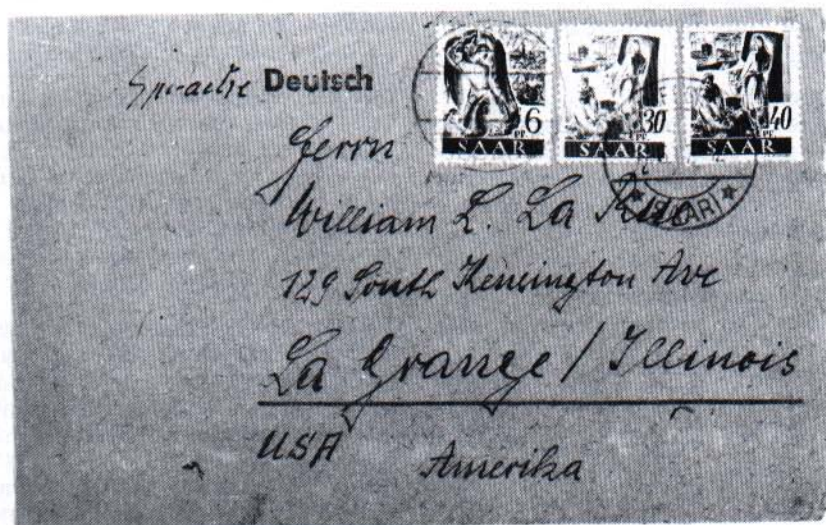 Sprache Deutsch
6 Pf 30 Pf 40 Pf
SAAR SAAR SAAR
(SAAR)
Herrn
William L. La Rue
129 South Kensington Ave
La Grange / Illinois
USA Amerika